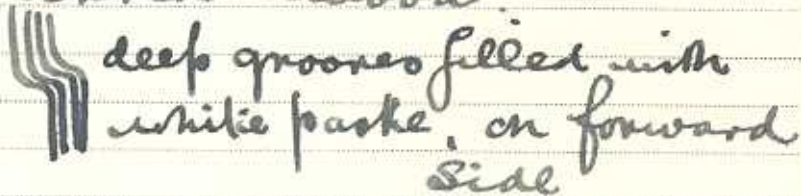 deep grooves filled with
white paste, on forward
side